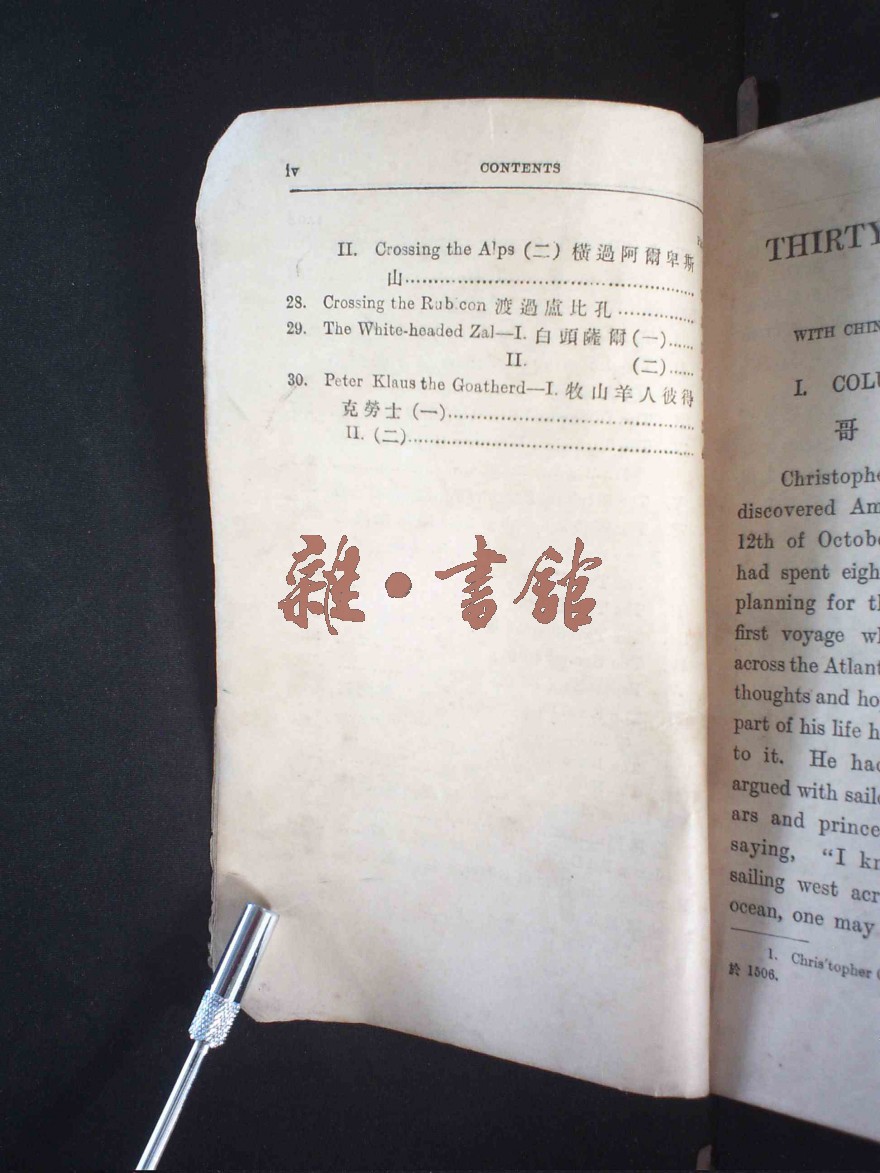 iv
CONTENTS
II. Crossing the Alps (二) 橫過阿爾卑斯
山
28. Crossing the Rubicon 渡過盧比孔
29. The White-headed Zal—I. 白頭薩爾 (一)
II. (二)
30. Peter Klaus the Goatherd—I. 牧山羊人彼得
克勞士 (一)
II. (二)
雜•書館
THIRTY
WITH CHIN
I. COLU
哥
Christophe
discovered Am
12th of Octobe
had spent eigh
planning for th
first voyage wh
across the Atlant
thoughts and ho
part of his life h
to it. He had
argued with sail
ars and prince
saying, “I kn
sailing west acr
ocean, one may
1. Chris'topher
於 1506.